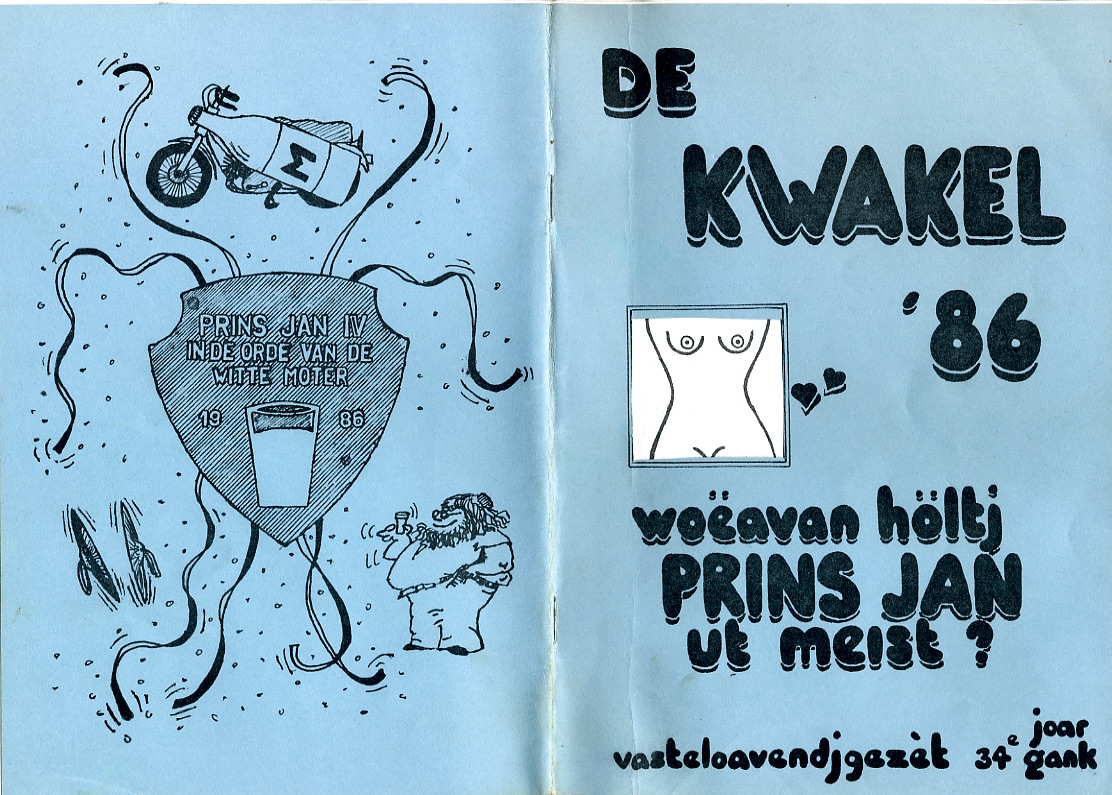 PRINS JAN IV
IN DE ORDE VAN DE
WITTE MOTER
19 86
M
DE
KWAKEL
'86
woëavan höltj
PRINS JAN
ut meist ?
vasteloavendjgezèt 34e joar
gank